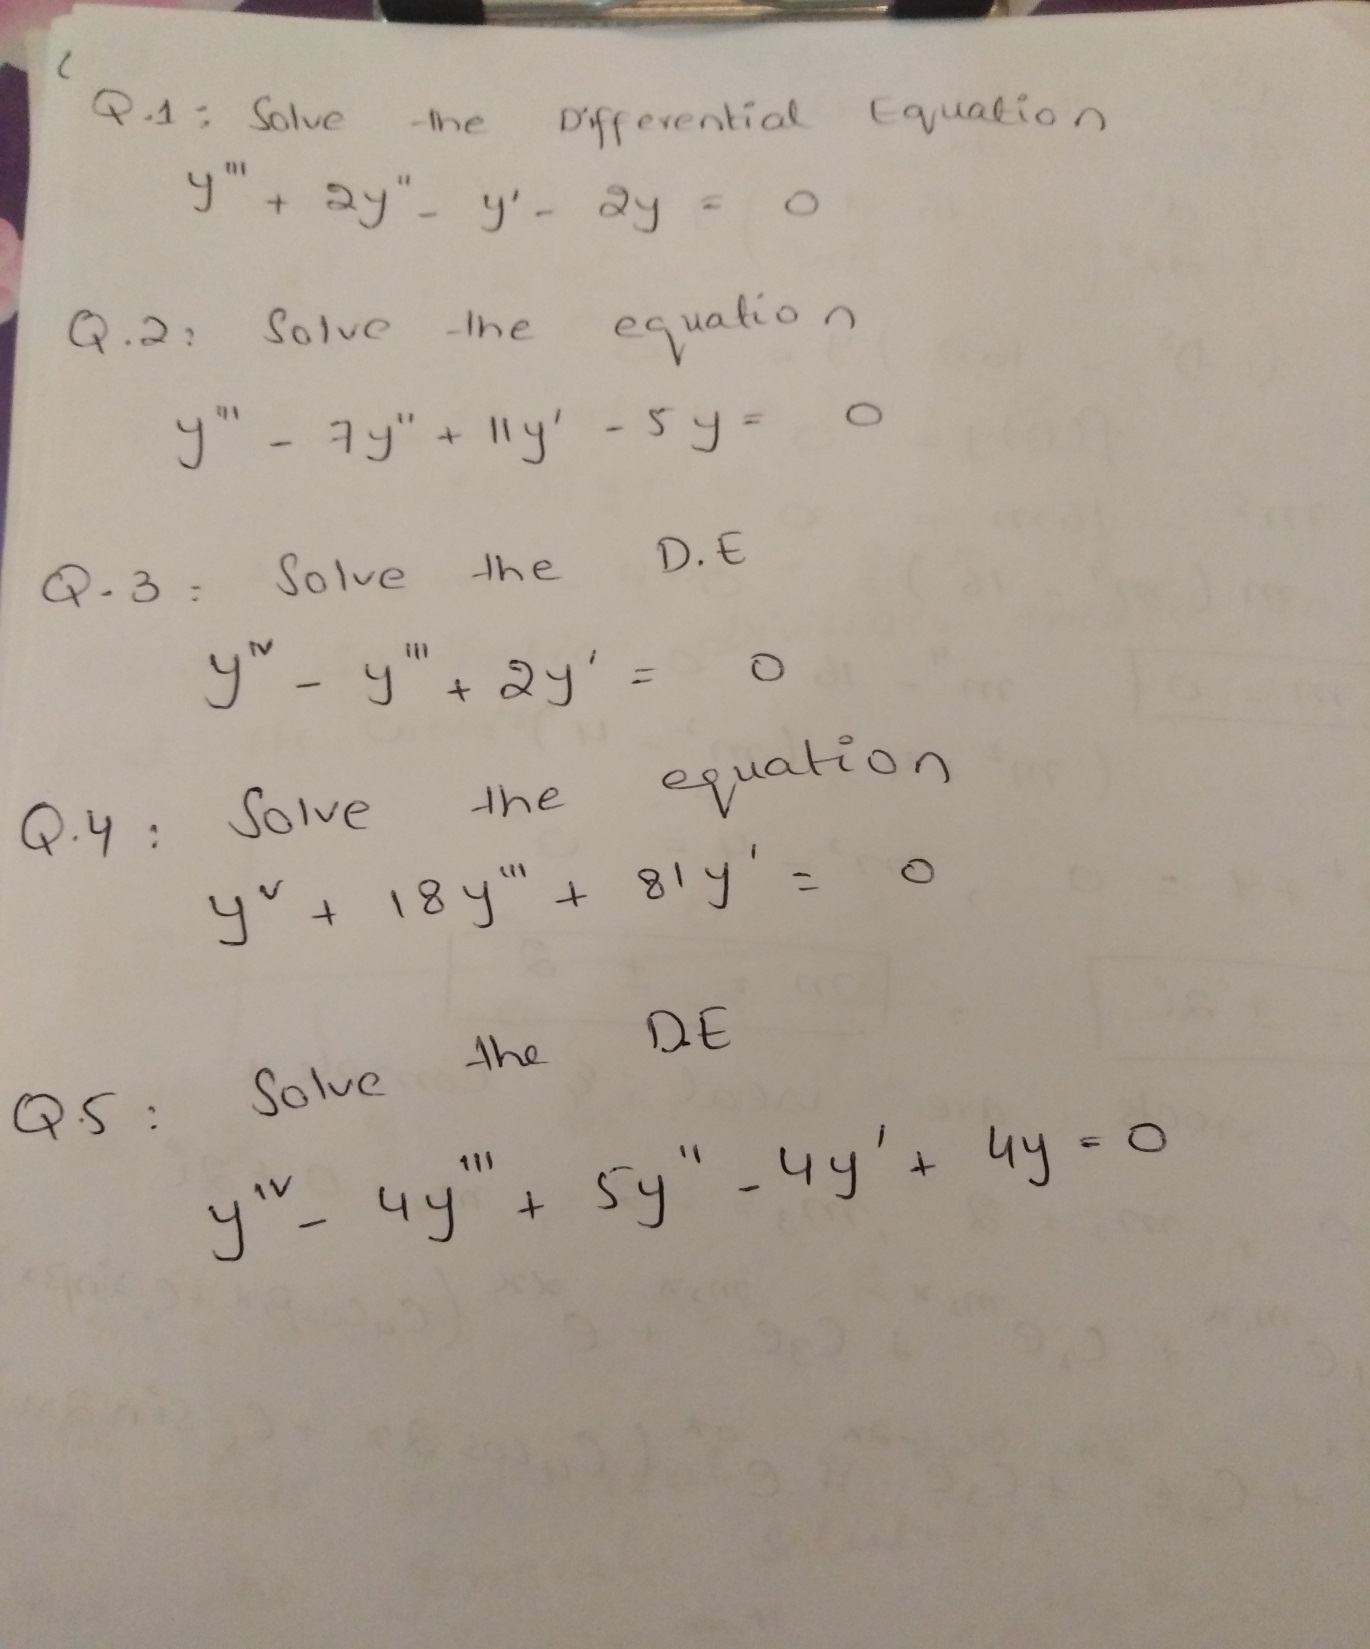 Q.1: Solve the Differential Equation
y''' + 2y'' - y' - 2y = 0
Q.2: Solve the equation
y''' - 7y'' + 11y' - 5y = 0
Q.3: Solve the D.E
y^IV - y''' + 2y' = 0
Q.4: Solve the equation
y^V + 18y''' + 81y' = 0
Q.5: Solve the DE
y^IV - 4y''' + 5y'' - 4y' + 4y = 0